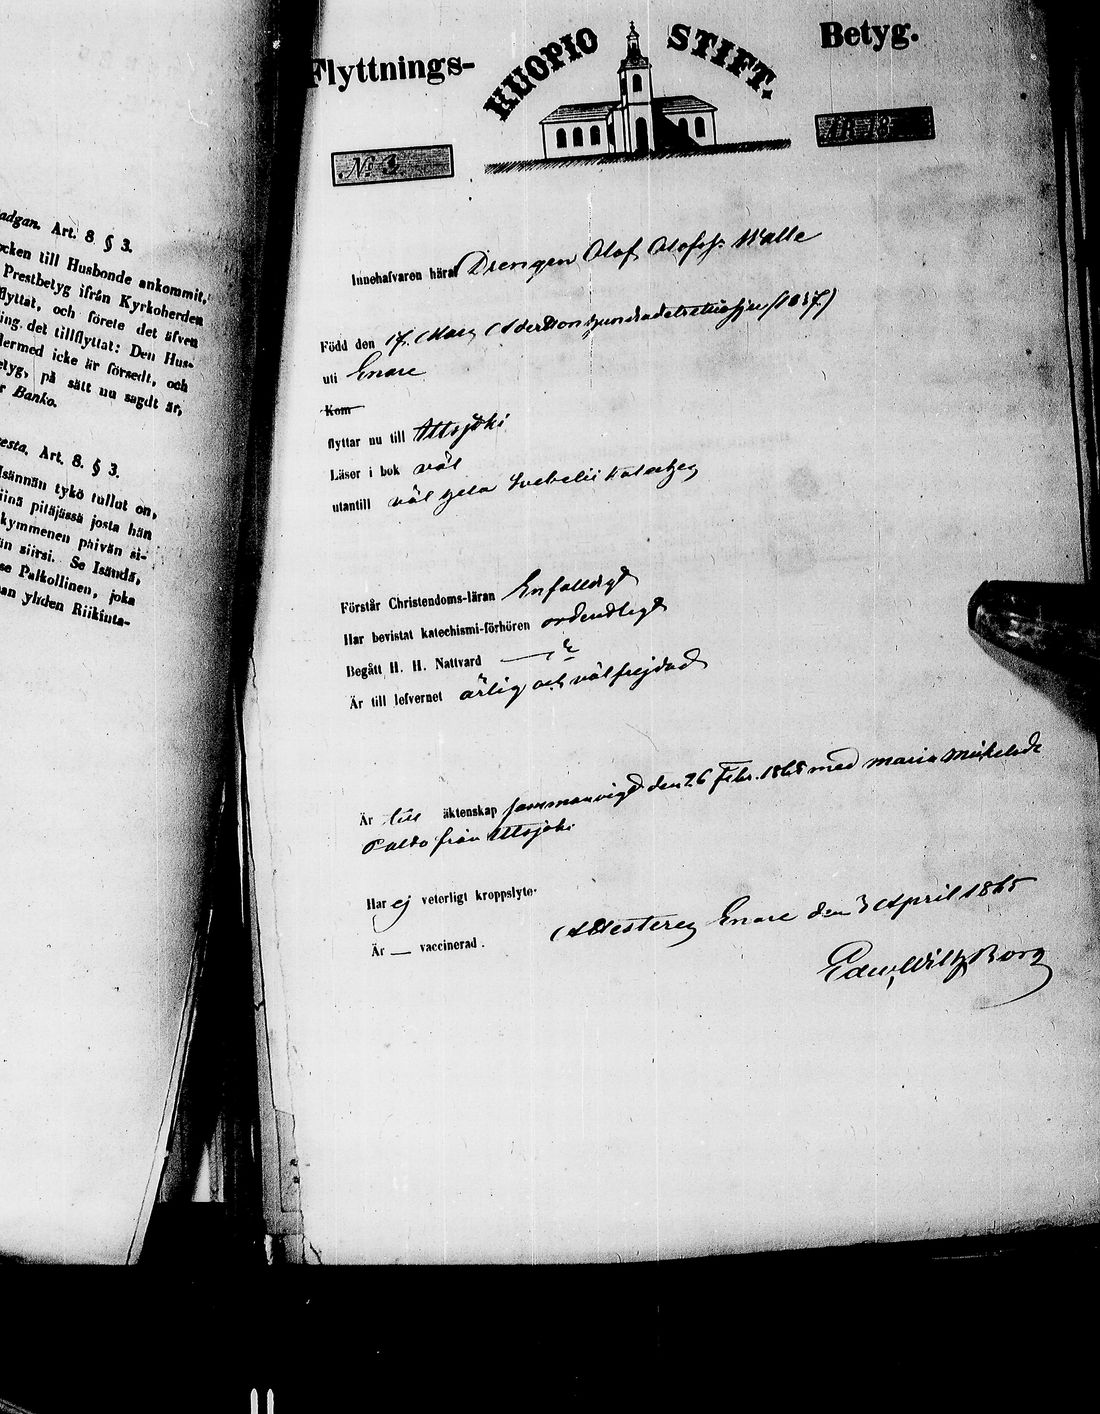 adgan. Art. 8 § 3.
ocken till Husbonde ankommit,
Prestbetyg ifrån Kyrkoherden
flyttat, och förete det äfven
ing. det tillflyttat: Den Hus-
dermed icke är försedt, och
etyg, på sätt nu sagdt är,
r Banko.
esta, Art. 8. § 3.
Isännän tykö tullut on,
iinä pitäjässä josta hän
kymmenen päivän si-
än siirsi. Se Isändä,
se Palkollinen, joka
an yhden Riikinta-
Flyttnings- KUOPIO STIFT. Betyg.
№ 3
Innehafvaren häraf Drengen Olof Olofss. Walle
Född den 17. (1837)
uti Enare
Kom
flyttar nu till Utsjoki
Läser i bok väl
utantill väl hela Svebelii
Förstår Christendoms-läran Enfalldigt
Har bevistat katechismi-förhören ordendtligt
Begått H. H. Nattvard
Är till lefvernet ärlig och välfrejdad
Är till äktenskap sammanvigd den 26 Febr. 1865 med Maria Mickelsdr
från Utsjoki
Har ej veterligt kroppslyte.
Är — vaccinerad.
Attesterer Enare den 3 April 1865
Edw. Wilh. Borg